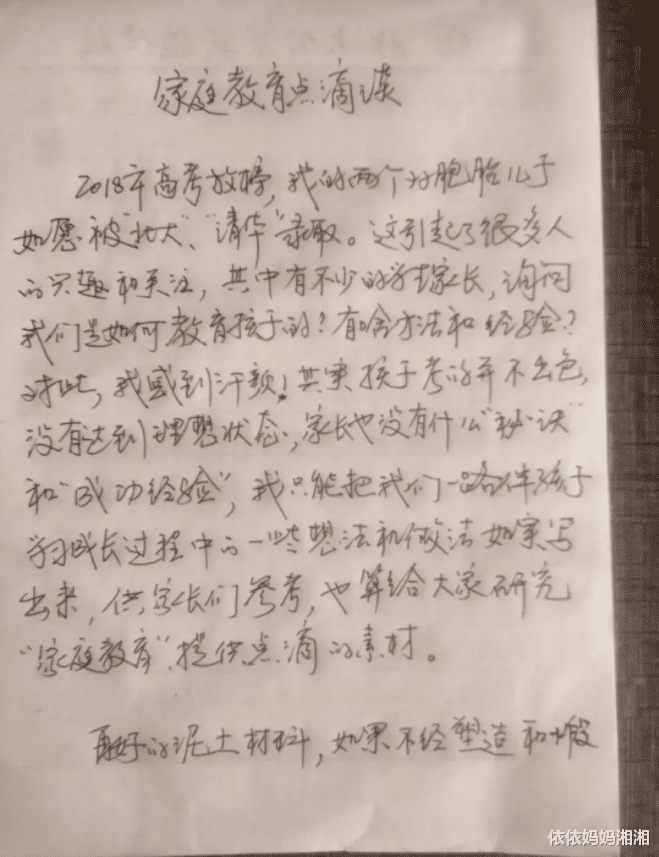 家庭教育点滴谈
2018年高考放榜，我的两个双胞胎儿子
如愿被“北大”、“清华”录取。这引起了很多人
的兴趣和关注，其中有不少的学生家长，询问
我们是如何教育孩子的？有啥方法和经验？
对此，我感到汗颜！其实孩子考的并不出色，
没有达到理想状态，家长也没有什么“秘诀”
和“成功经验”，我只能把我们一路伴孩子
学习成长过程中的一些想法和做法如实写
出来，供家长们参考，也算给大家研究
“家庭教育”提供点滴的素材。
再好的泥土材料，如果不经塑造和煅
依依妈妈湘湘